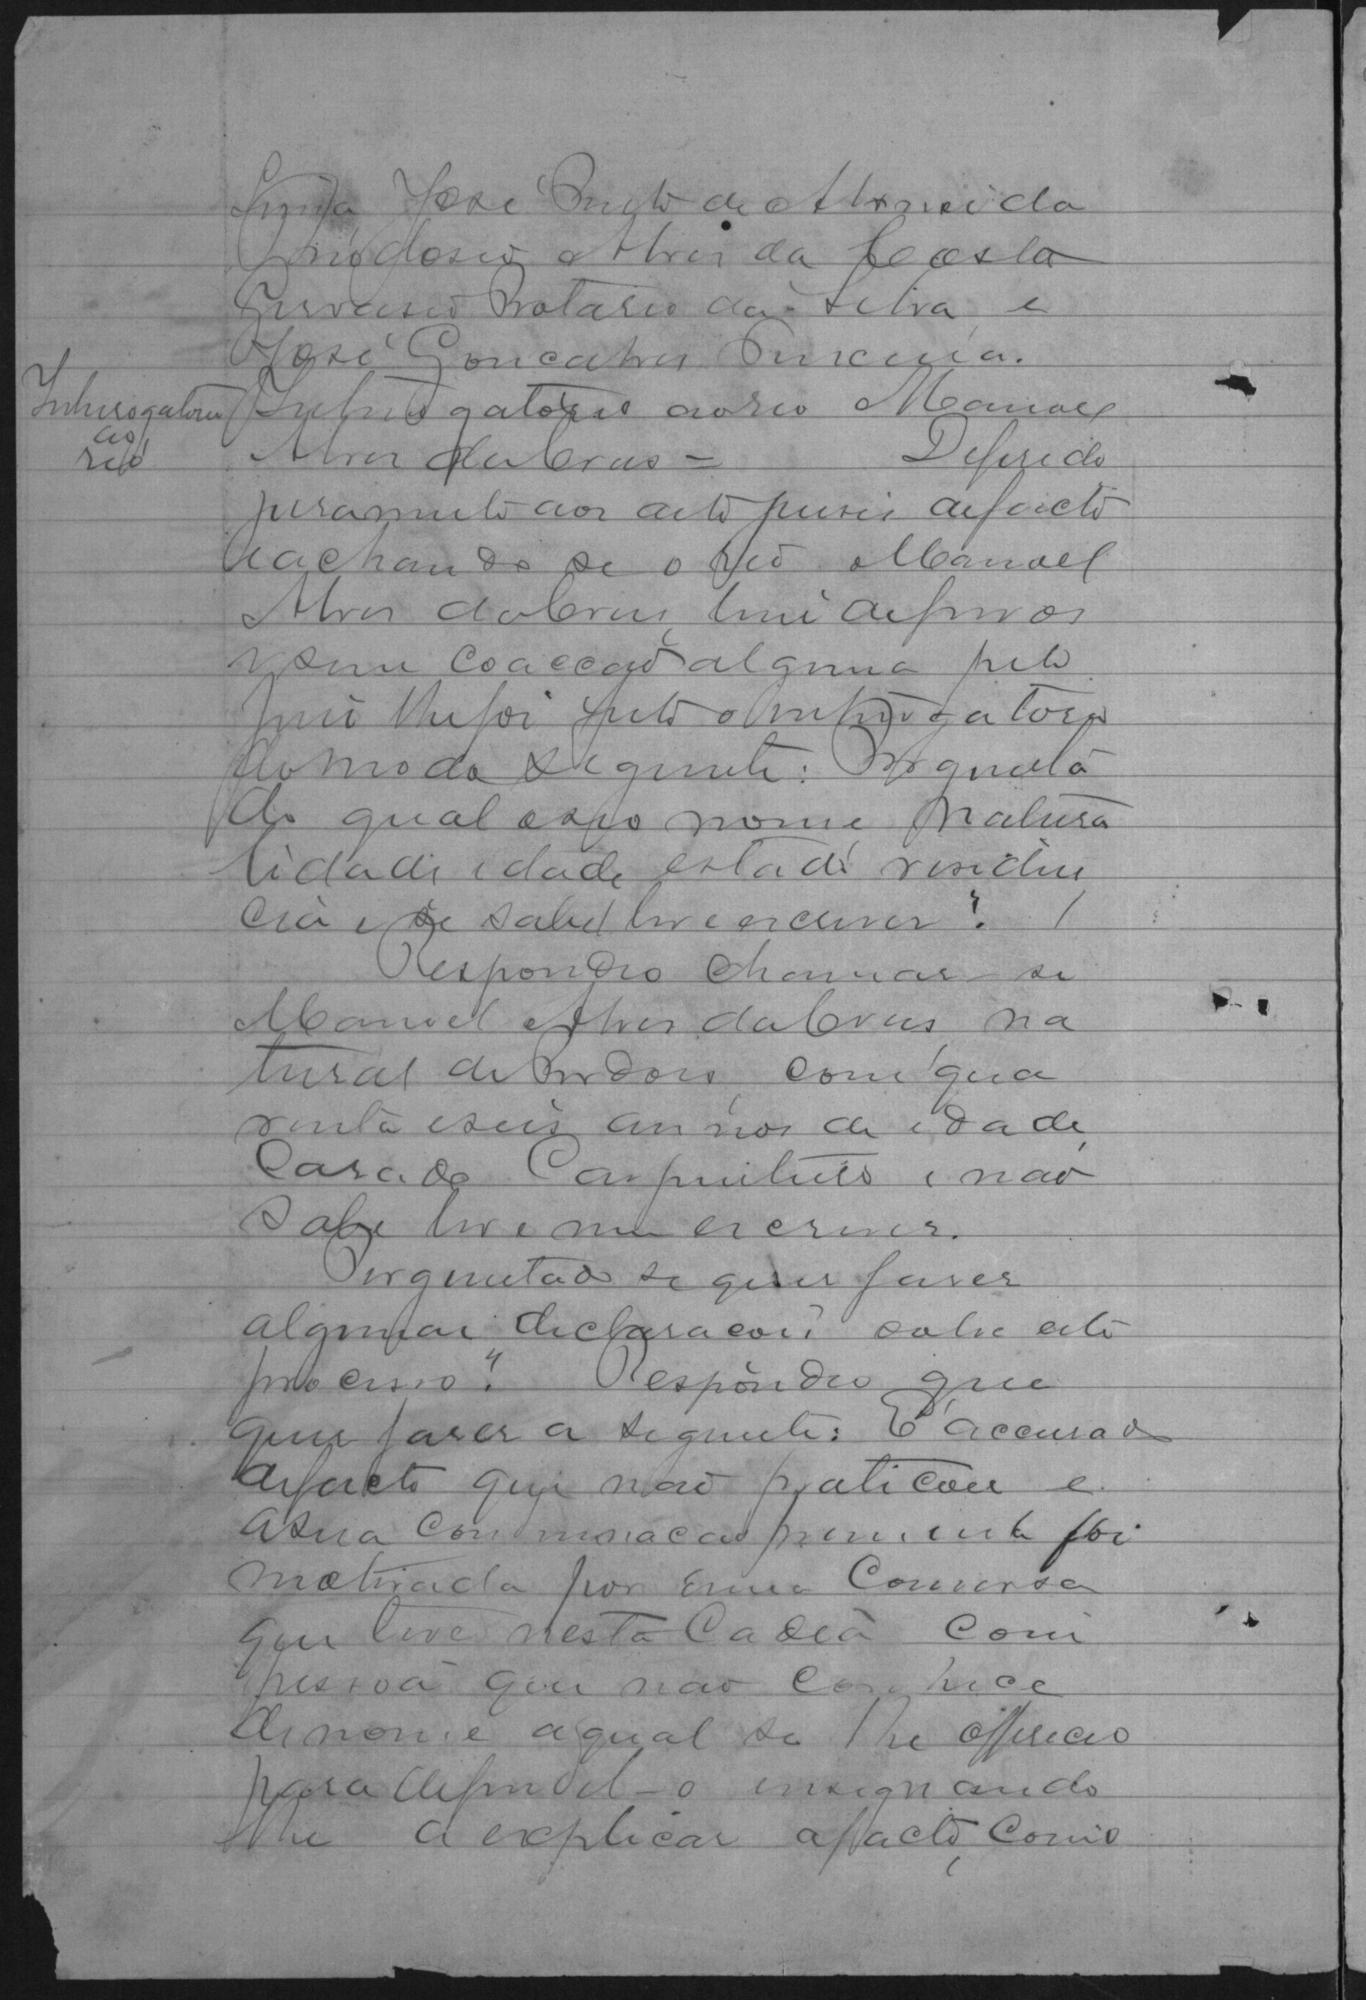 José Pinto de Almeida
Alves da Costa
Gervasio Protasio da Silva e
José Gonçalves
Interrogatorio
ao
reo
Interrogatorio ao reo Manoel
Alves da Cruz = Deferido
juramento aos de facto
e achando se o reo Manoel
Alves da Cruz, livre de ferros
e sem coacção alguma pelo
Juis lhe foi feito o interrogatorio
do modo seguinte: Pergunta
do qual o seo nome, natura
lidade, idade, estado, residen
cia e se sabe ler e escrever?
Respondeo chamar se
Manoel Alves da Cruz, na
tural de com qua
renta e seis annos de idade,
Casado Carpinteiro e não
Sabe ler e nem escrever.
Perguntado se quer faser
algumas declaracois sobre este
processo? Respondeo que
quer faser a seguinte: É accusado
de facto que não praticou e
a sua foi
motivada por uma Conversa
que teve nesta Cadeia com
pessoa que não conhece
de nome a qual se lhe offereceo
para defendel-o ensignando
lhe a explicar o facto, como